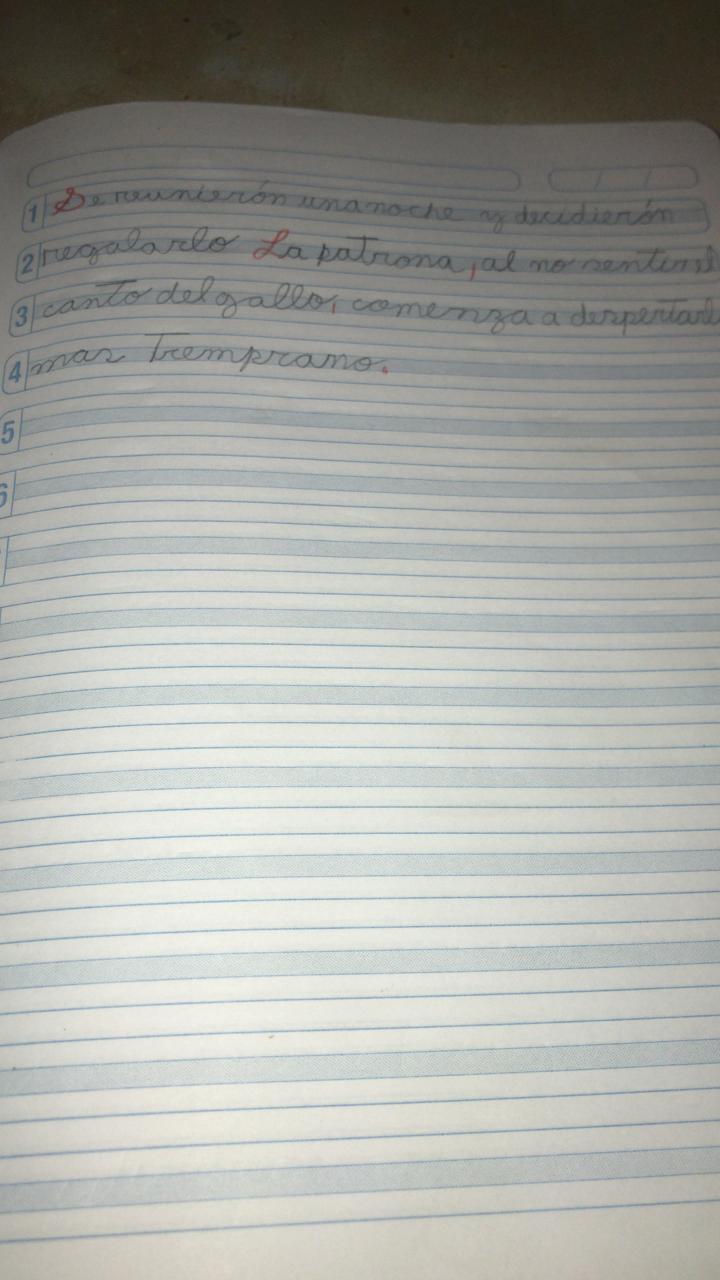 1 Se reunierón una noche y decidierón
2 regalarlo La patrona, al no sentir el
3 canto del gallo, comenza a despertarl
4 mas Tremprano.
5
6